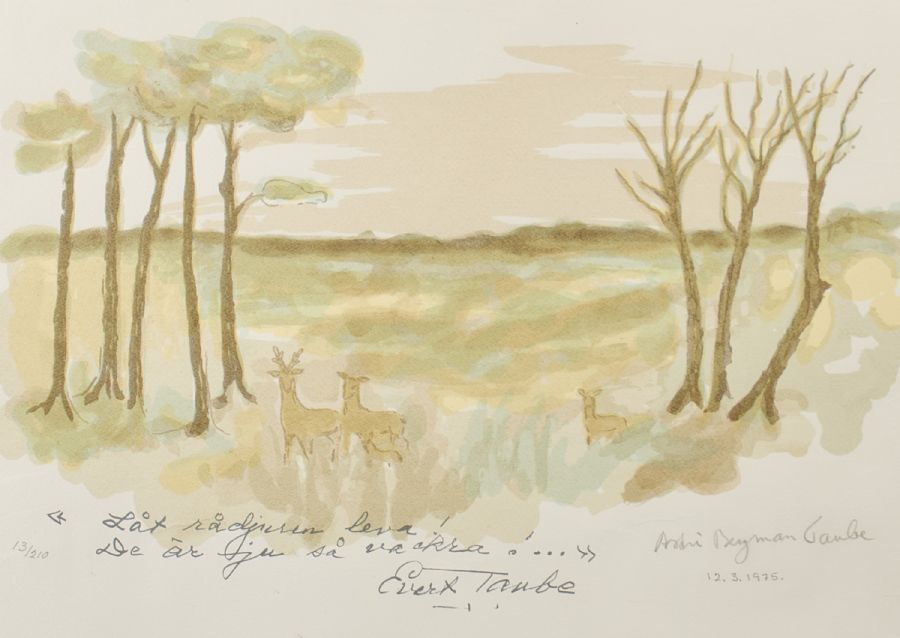 « Låt rådjuren leva!
De är ju så vackra!...»
Evert Taube
13/210
Astri Bergman Taube
12.3.1975.